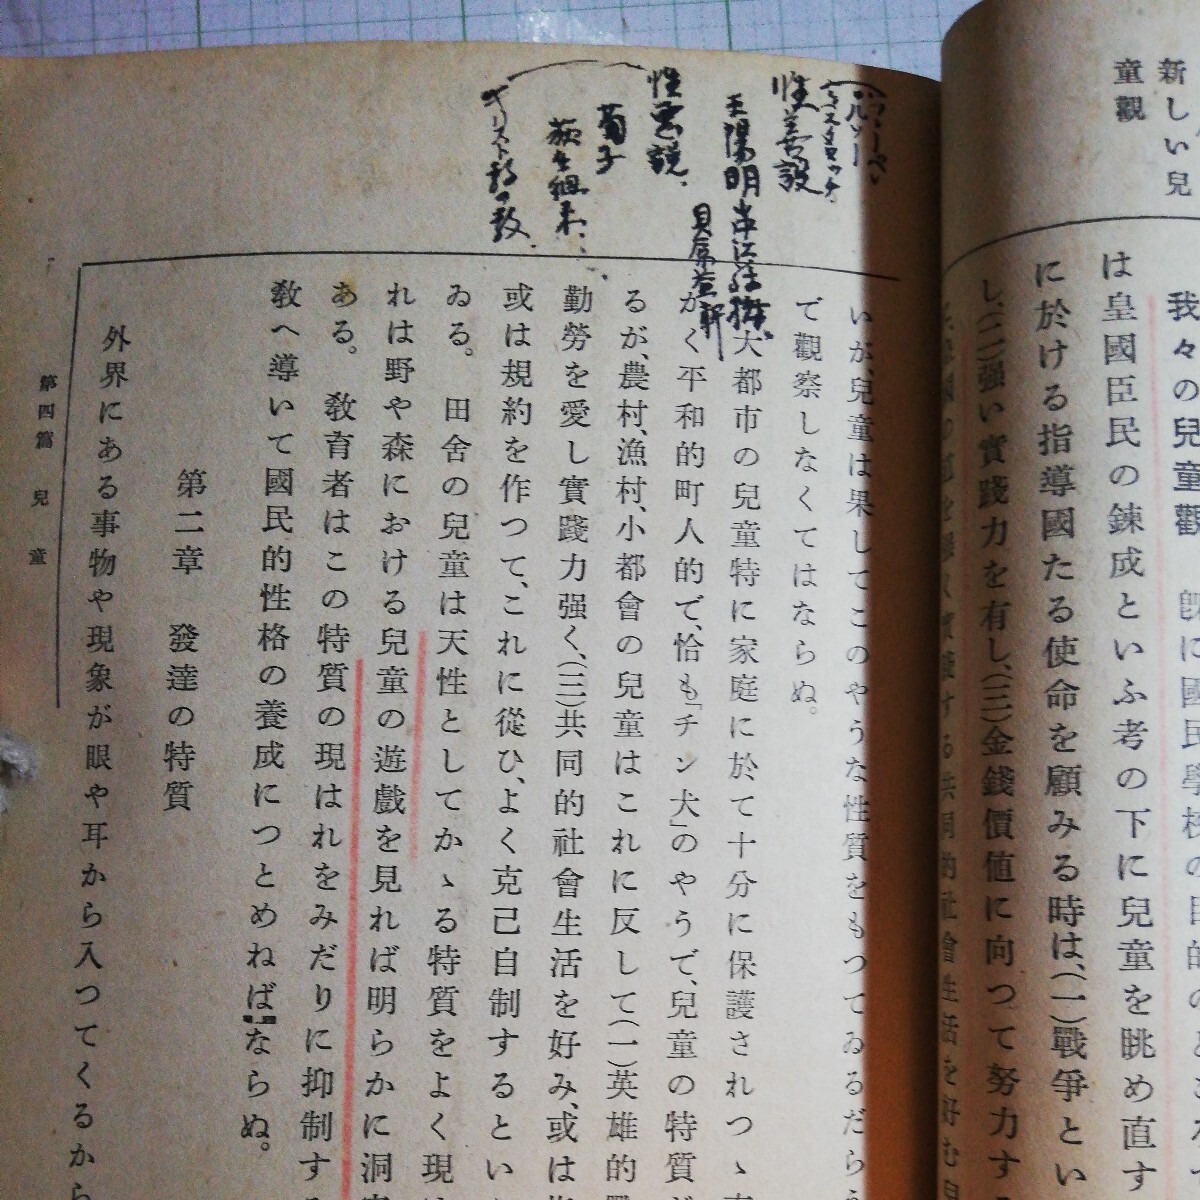 新しい兒
童觀
我々の兒童觀　旣に國民學校の目的のところ
は皇國臣民の鍊成といふ考の下に兒童を眺め直す
に於ける指導國たる使命を顧みる時は、(一)戰爭とい
し、(二)强い實踐力を有し、(三)金錢價値に向つて努力す
する共同的社會生活を好む
いが、兒童は果してこのやうな性質をもつてゐるだらう
で觀察しなくてはならぬ。
大都市の兒童特に家庭に於て十分に保護されつゝ
かく平和的町人的で、恰も「チン犬」のやうで、兒童の特質が
るが、農村、漁村、小都會の兒童はこれに反して(一)英雄的
勤勞を愛し實踐力强く、(三)共同的社會生活を好み、或は
或は規約を作つて、これに從ひ、よく克己自制するとい
ゐる。　田舍の兒童は天性としてかゝる特質をよく現
れは野や森における兒童の遊戲を見れば明らかに洞
ある。　敎育者はこの特質の現はれをみだりに抑制す
敎へ導いて國民的性格の養成につとめねばならぬ。
第二章　發達の特質
外界にある事物や現象が眼や耳から入つてくるから
第四篇　兒童
ルソー
性善説
王陽明　中江藤樹、
貝原益軒
性惡説、
荀子
荻生徂來
キリスト教の教